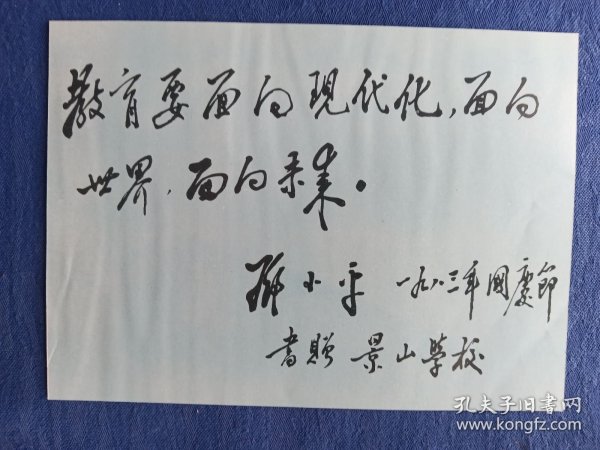 教育要面向現代化，面向
世界，面向未来。
邓小平 一九八三年國慶節
書贈 景山學校
孔夫子旧書网
www.kongfz.com